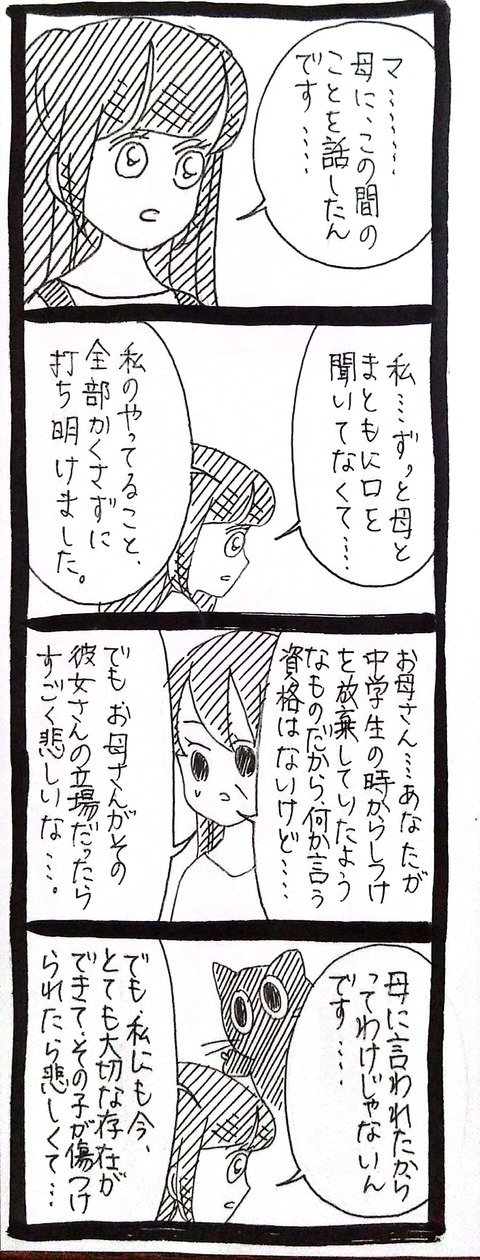 マ……
母に、この間の
ことを話したん
です……
私…ずっと母と
まともに口を
聞いてなくて…
私のやってること、
全部かくさずに
打ち明けました。
お母さん…あなたが
中学生の時からしつけ
を放棄していたよう
なものだから、何か言う
資格はないけど…
でもお母さんがその
彼女さんの立場だったら
すごく悲しいな…。
母に言われたから
ってわけじゃないん
です…
でも、私にも今、
とても大切な存在が
できて、その子が傷つけ
られたら悲しくて…